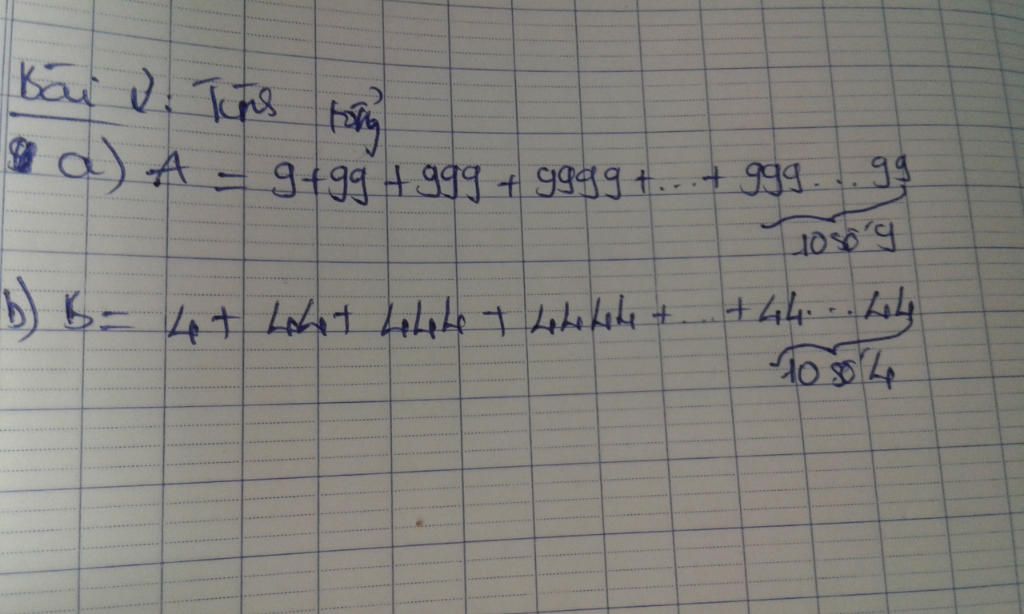 Bài 2: Tính tổng
a) A = 9+99+999+9999+...+999...99
10 số 9
b) B = 4+44+444+4444+...+44...44
10 số 4